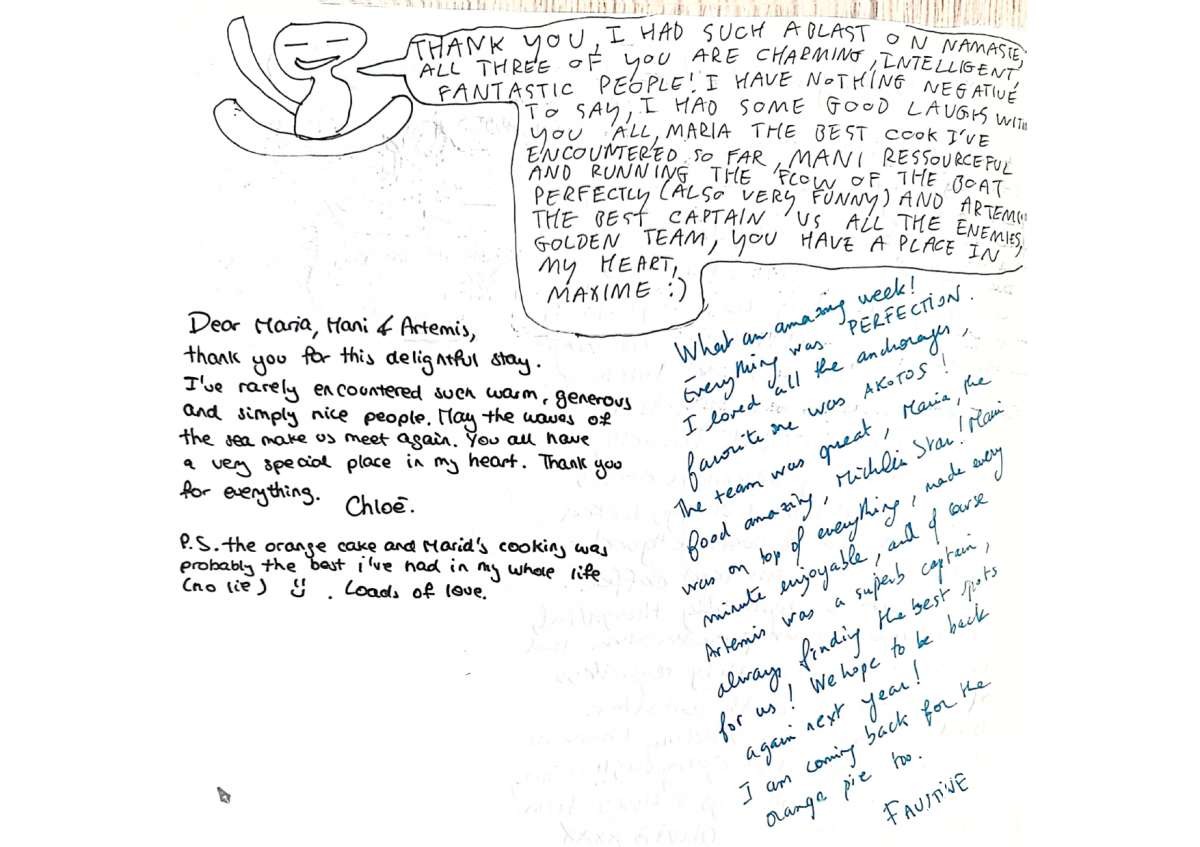 THANK YOU, I HAD SUCH A BLAST ON NAMASTE,
ALL THREE OF YOU ARE CHARMING, INTELLIGENT,
FANTASTIC PEOPLE! I HAVE NOTHING NEGATIVE
TO SAY, I HAD SOME GOOD LAUGHS WITH
YOU ALL, MARIA THE BEST COOK I'VE
ENCOUNTERED SO FAR, MANI RESSOURCEFUL
AND RUNNING THE FLOW OF THE BOAT
PERFECTLY (ALSO VERY FUNNY) AND ARTEMIS
THE BEST CAPTAIN US ALL THE ENEMIES,
GOLDEN TEAM, YOU HAVE A PLACE IN
MY HEART,
MAXIME :)
Dear Maria, Mani & Artemis,
thank you for this delightful stay.
I've rarely encountered such warm, generous
and simply nice people. May the waves of
the sea make us meet again. You all have
a very special place in my heart. Thank you
for everything.
Chloé.
P.S. the orange cake and Maria's cooking was
probably the best i've had in my whole life
(no lie) . Loads of love.
What an amazing week!
Everything was PERFECTION.
I loved all the anchorages,
favorite one was AKOTOS!
The team was great, Maria, the
food amazing, Michelin Star! Mani
was on top of everything, made every
minute enjoyable, and of course
Artemis was a superb captain,
always finding the best spots
for us! We hope to be back
again next year!
I am coming back for the
orange pie too.
FAUSTINE